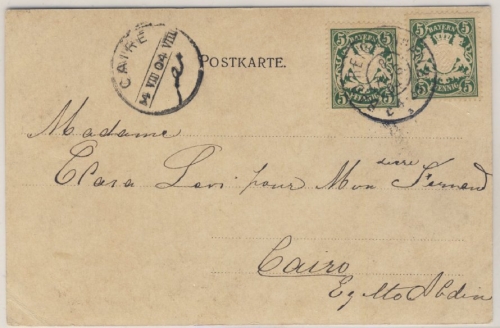 CAIRE
VIII 04 VIII
POSTKARTE.
5 BAYERN 5
5 PFENNIG 5
5 BAYERN 5
5 PFENNIG 5
Madame
Clara Levi pour Mon
Cairo
Egitto Abdin